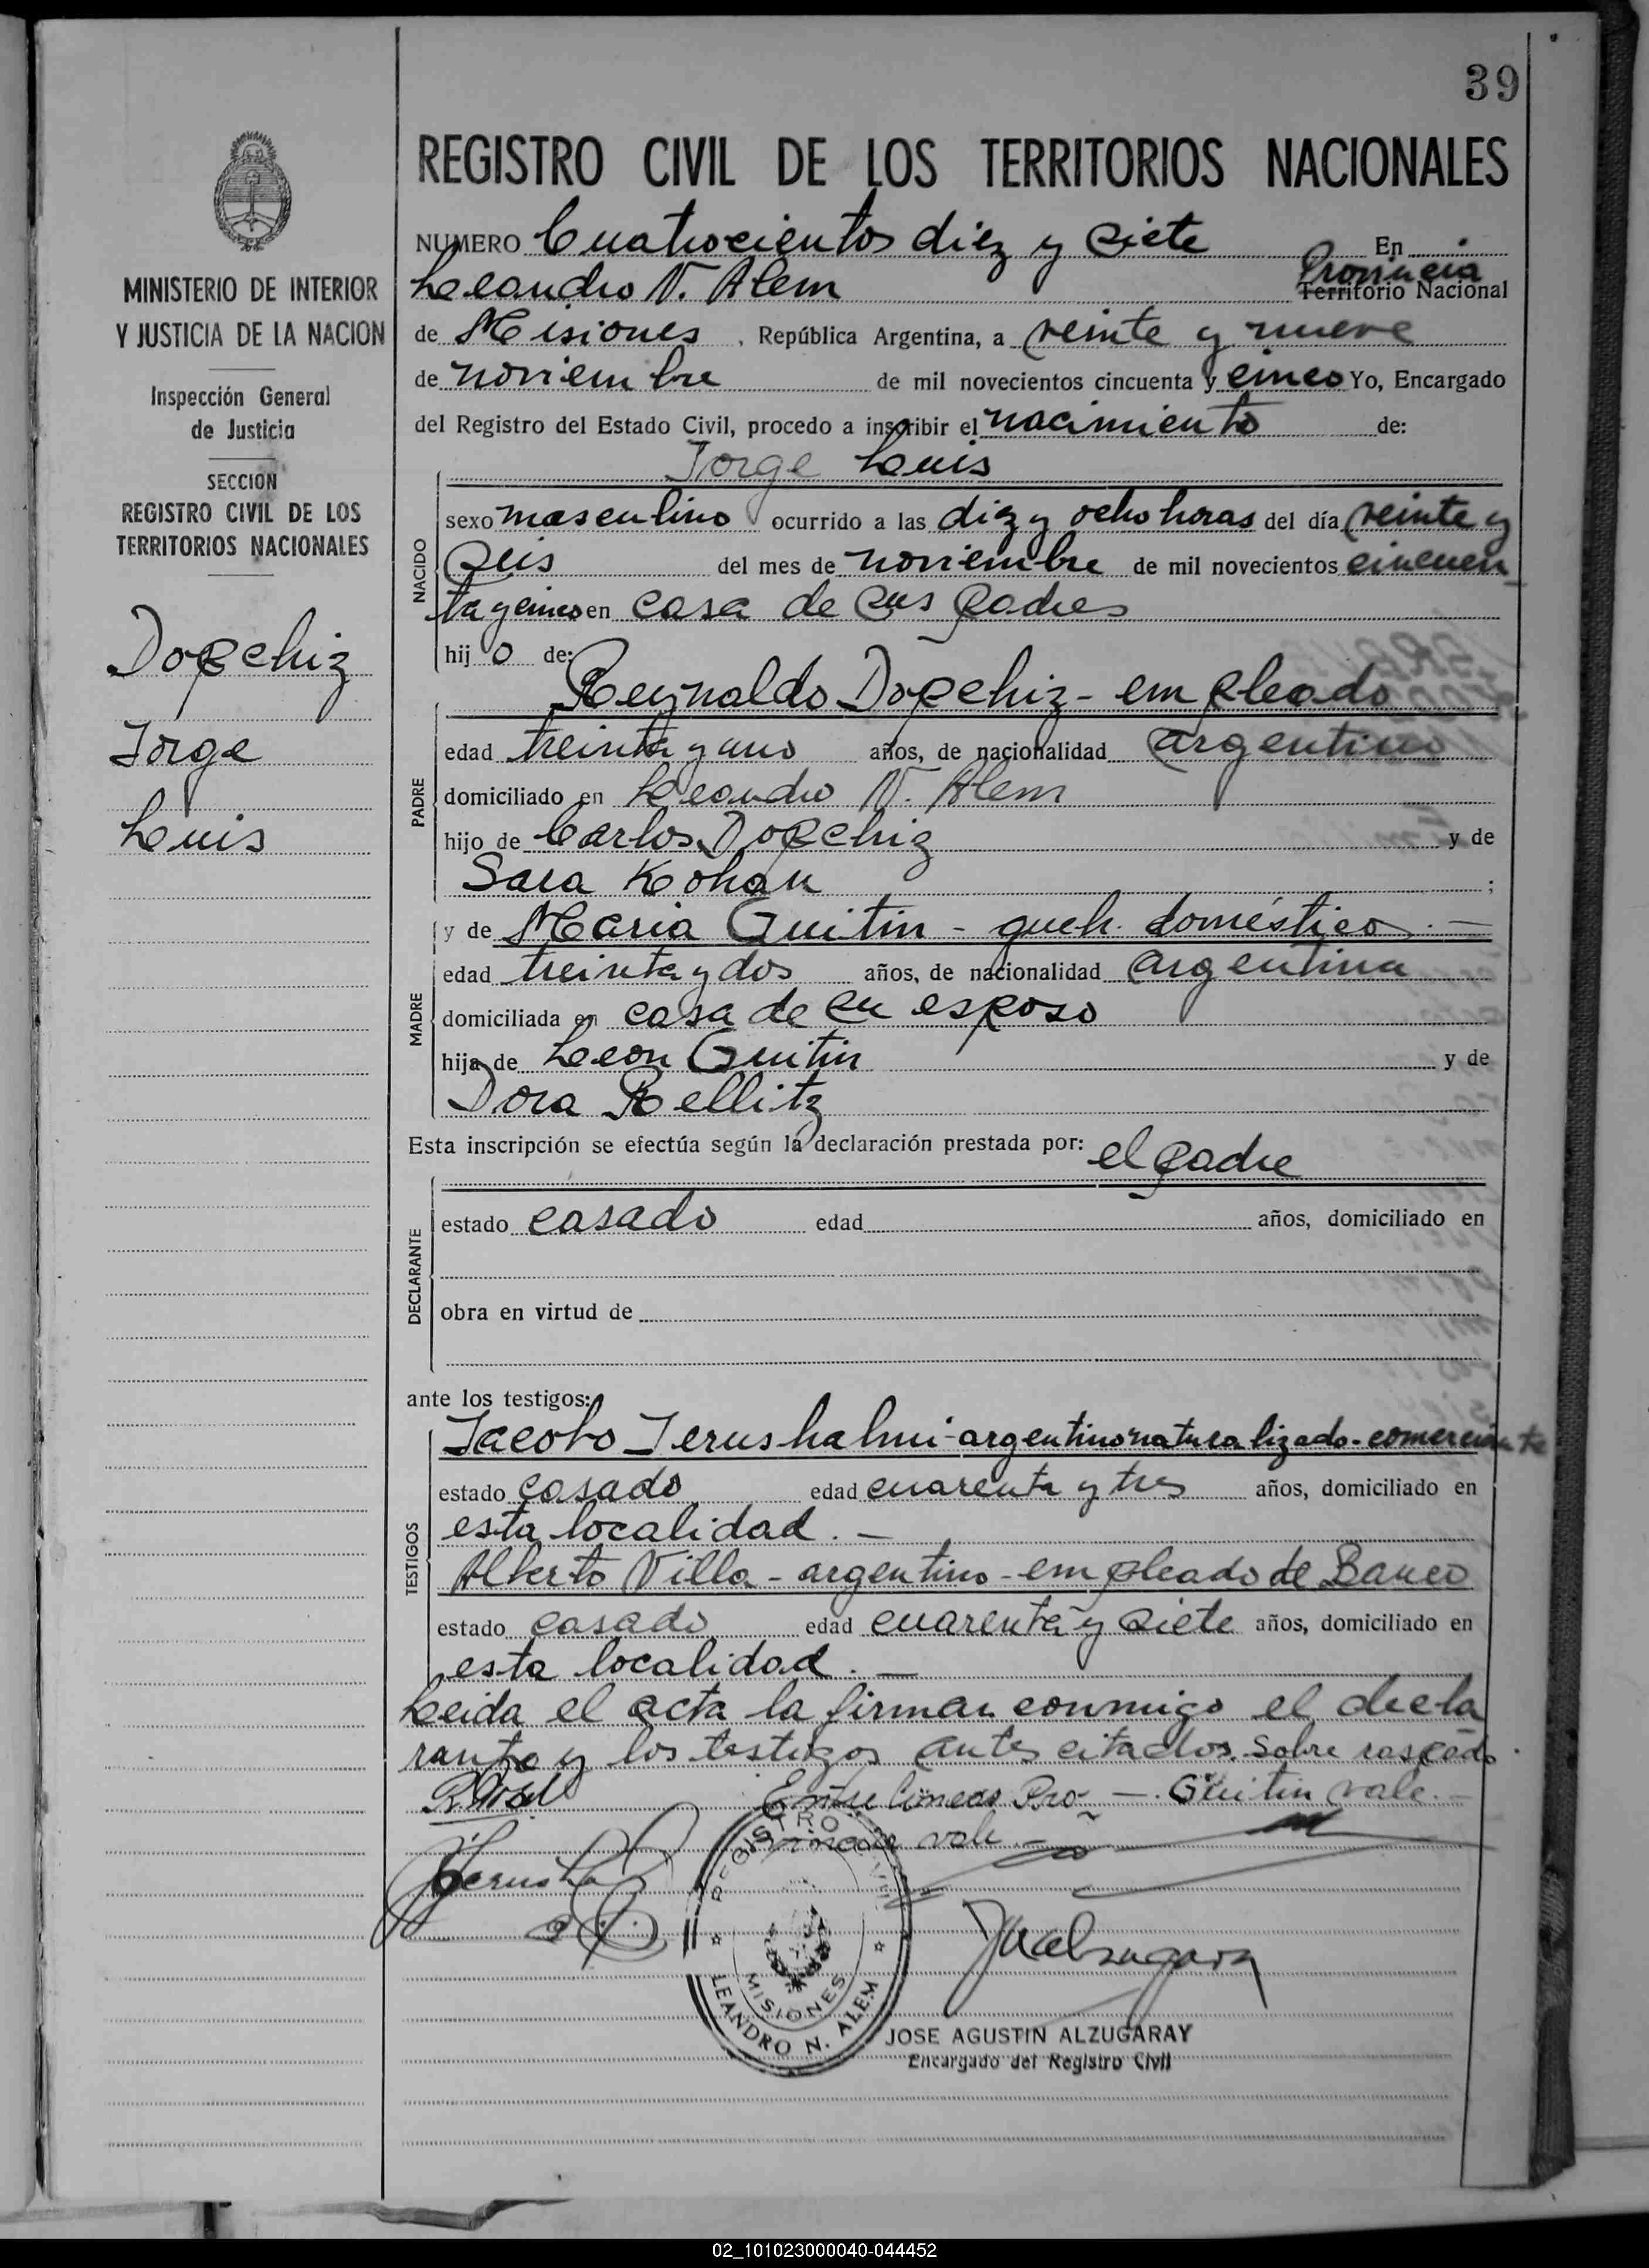 39
REGISTRO CIVIL DE LOS TERRITORIOS NACIONALES
MINISTERIO DE INTERIOR
Y JUSTICIA DE LA NACION
Inspección General
de Justicia
SECCION
REGISTRO CIVIL DE LOS
TERRITORIOS NACIONALES
Dopchiz
Jorge
Luis
NUMERO Cuatrocientos diez y siete En
Leandro N. Alem Provincia Territorio Nacional
de Misiones, República Argentina, a veinte y nueve
de noviembre de mil novecientos cincuenta y cinco Yo, Encargado
del Registro del Estado Civil, procedo a inscribir el nacimiento de:
Jorge Luis
NACIDO
sexo masculino ocurrido a las diez y ocho horas del día veinte y
seis del mes de noviembre de mil novecientos cincuen
ta y cinco en casa de sus padres
hij o de:
PADRE
Reynaldo Dopchiz - empleado
edad treinta y uno años, de nacionalidad argentino
domiciliado en Leandro N. Alem
hijo de Carlos Dopchiz y de
Sara Kohan ;
MADRE
y de Maria Guitin - queh. doméstico. —
edad treinta y dos años, de nacionalidad argentina
domiciliada en casa de su esposo
hija de Leon Guitin y de
Dora Rellitz
Esta inscripción se efectúa según la declaración prestada por: el padre
DECLARANTE
estado casado edad años, domiciliado en
obra en virtud de
ante los testigos:
TESTIGOS
Jacobo Jerushalmi - argentino naturalizado - comerciante
estado casado edad cuarenta y tres años, domiciliado en
esta localidad. —
Alberto Villa - argentino - empleado de Banco
estado casado edad cuarenta y siete años, domiciliado en
esta localidad. —
Leida el acta la firman conmigo el decla
rante y los testigos antes citados. Sobre raspado
Entre lineas Pro — . Guitin vale. —
vincia vale. —
REGISTRO CIVIL
MISIONES
LEANDRO N. ALEM
JOSE AGUSTIN ALZUGARAY
Encargado del Registro Civil
02_101023000040-044452